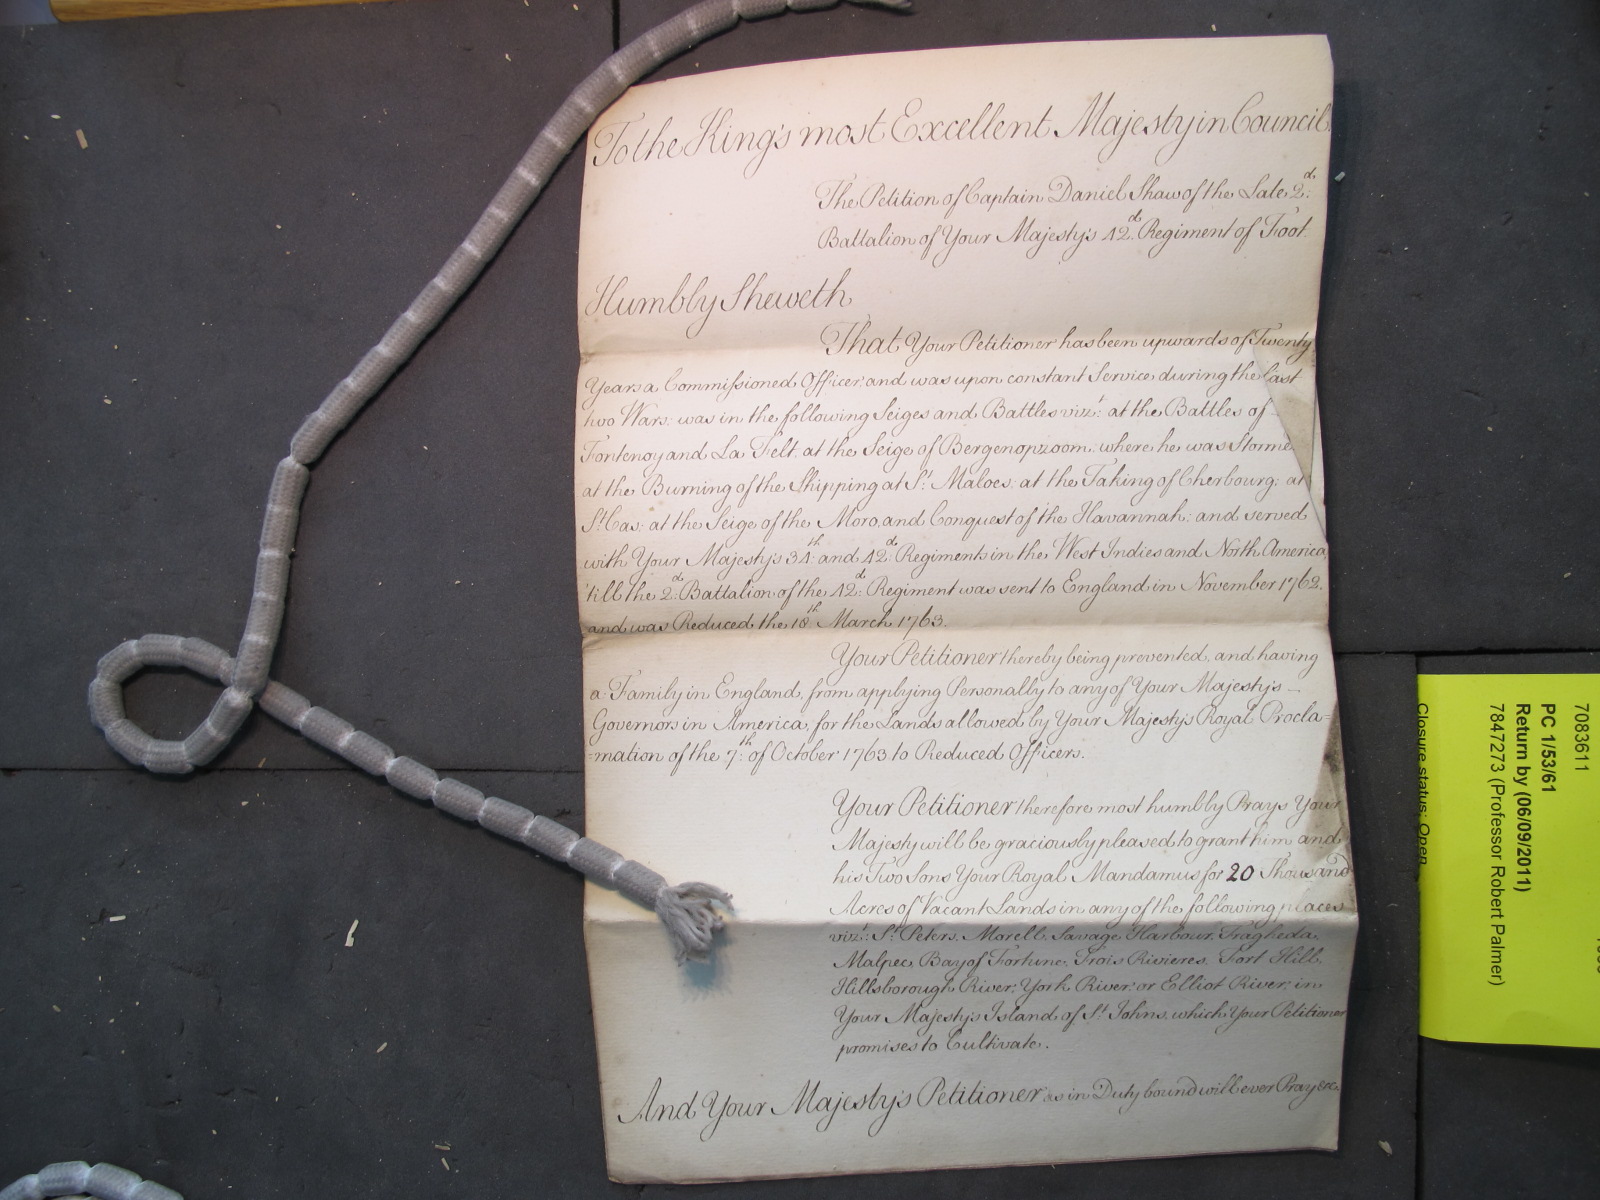 To the King's most Excellent Majesty in Council.
The Petition of Captain Daniel Shaw of the Late 2.d
Battalion of Your Majesty's 42.d Regiment of Foot.
Humbly Sheweth
That Your Petitioner has been upwards of Twenty
Years a Commissioned Officer, and was upon constant Service during the last
two Wars: was in the following Seiges and Battles vizt: at the Battles of
Fontenoy and La Felt, at the Seige of Bergenopzoom, where he was Storme
at the Burning of the Shipping at St. Maloes; at the Taking of Cherbourg; at
St. Cas; at the Seige of the Moro, and Conquest of the Havannah; and served
with Your Majesty's 34.th and 42.d Regiments in the West Indies and North America,
'till the 2.d Battalion of the 42.d Regiment was sent to England in November 1762.
and was Reduced the 18th March 1763.
Your Petitioner thereby being prevented, and having
a Family in England, from applying Personally to any of Your Majesty's
Governors in America, for the Lands allowed by Your Majesty's Royal Procla=
=mation of the 7.th of October 1763 to Reduced Officers.
Your Petitioner therefore most humbly Prays Your
Majesty will be graciously pleased to grant him and
his Two Sons Your Royal Mandamus for 20 Thousand
Acres of Vacant Lands in any of the following places
vizt: St. Peters, Morell, Savage Harbour, Tragheda,
Malpec, Bay of Fortune, Trois Rivieres, Fort Hill,
Hillsborough River; York River; or Elliot River; in
Your Majesty's Island of St. Johns, which Your Petitioner
promises to Cultivate.
And Your Majesty's Petitioner as in Duty bound will ever Pray &c.
7083611
PC 1/53/61
Return by (06/09/2011)
7847273 (Professor Robert Palmer)
Closure status: Open